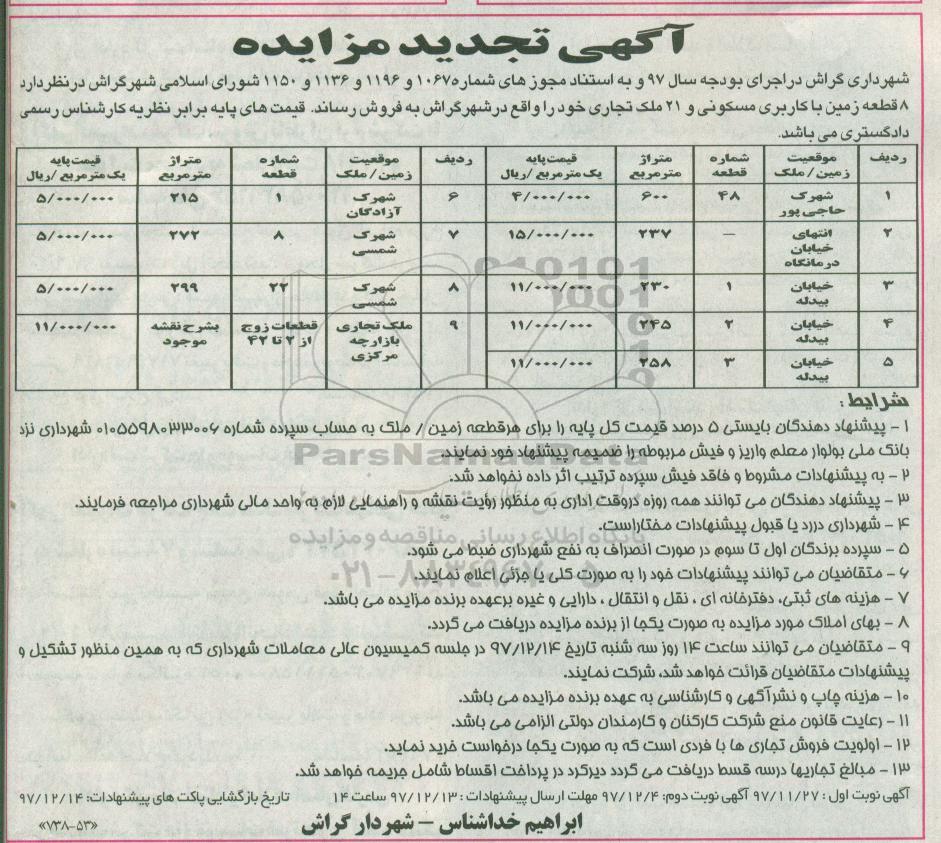 آگهی تجدید مزایده
شهرداری گراش در اجرای بودجه سال ۹۷ و به استناد مجوز های شماره ۱۰۶۷ و ۱۱۹۶ و ۱۱۳۶ و ۱۱۵۰ شورای اسلامی شهر گراش در نظر دارد
۸ قطعه زمین با کاربری مسکونی و ۲۱ ملک تجاری خود را واقع در شهر گراش به فروش رساند. قیمت های پایه برابر نظریه کارشناس رسمی
دادگستری می باشد.
ردیف | موقعیت زمین / ملک | شماره قطعه | متراژ مترمربع | قیمت پایه یک مترمربع /ریال | ردیف | موقعیت زمین / ملک | شماره قطعه | متراژ مترمربع | قیمت پایه یک مترمربع /ریال
۱ | شهرک حاجی پور | ۴۸ | ۶۰۰ | ۴/۰۰۰/۰۰۰ | ۶ | شهرک آزادگان | ۱ | ۲۱۵ | ۵/۰۰۰/۰۰۰
۲ | انتهای خیابان درمانگاه | — | ۲۳۷ | ۱۵/۰۰۰/۰۰۰ | ۷ | شهرک شمسی | ۸ | ۲۷۲ | ۵/۰۰۰/۰۰۰
۳ | خیابان بیدله | ۱ | ۲۳۰ | ۱۱/۰۰۰/۰۰۰ | ۸ | شهرک شمسی | ۲۲ | ۲۹۹ | ۵/۰۰۰/۰۰۰
۴ | خیابان بیدله | ۲ | ۲۴۵ | ۱۱/۰۰۰/۰۰۰ | ۹ | ملک تجاری بازارچه مرکزی | قطعات زوج از ۲ تا ۴۲ | بشرح نقشه موجود | ۱۱/۰۰۰/۰۰۰
۵ | خیابان بیدله | ۳ | ۲۵۸ | ۱۱/۰۰۰/۰۰۰
شرایط :
۱ - پیشنهاد دهندگان بایستی ۵ درصد قیمت کل پایه را برای هر قطعه زمین / ملک به حساب سپرده شماره ۰۱۰۵۵۹۸۰۳۳۰۰۶ شهرداری نزد
بانک ملی بولوار معلم واریز و فیش مربوطه را ضمیمه پیشنهاد خود نمایند.
ParsNamadData
۲ - به پیشنهادات مشروط و فاقد فیش سپرده ترتیب اثر داده نخواهد شد.
۳ - پیشنهاد دهندگان می توانند همه روزه دروقت اداری به منظور رؤیت نقشه و راهنمایی لازم به واحد مالی شهرداری مراجعه فرمایند.
۴ - شهرداری دررد یا قبول پیشنهادات مختاراست.
پایگاه اطلاع رسانی مناقصه و مزایده
۵ - سپرده برندگان اول تا سوم در صورت انصراف به نفع شهرداری ضبط می شود.
۰۲۱-۸۸۳۴۹۶۷۰-۵
۶ - متقاضیان می توانند پیشنهادات خود را به صورت کلی یا جزئی اعلام نمایند.
۷ - هزینه های ثبتی، دفترخانه ای ، نقل و انتقال ، دارایی و غیره برعهده برنده مزایده می باشد.
۸ - بهای املاک مورد مزایده به صورت یکجا از برنده مزایده دریافت می گردد.
۹ - متقاضیان می توانند ساعت ۱۴ روز سه شنبه تاریخ ۹۷/۱۲/۱۴ در جلسه کمیسیون عالی معاملات شهرداری که به همین منظور تشکیل و
پیشنهادات متقاضیان قرائت خواهد شد، شرکت نمایند.
۱۰ - هزینه چاپ و نشرآگهی و کارشناسی به عهده برنده مزایده می باشد.
۱۱ - رعایت قانون منع شرکت کارکنان و کارمندان دولتی الزامی می باشد.
۱۲ - اولویت فروش تجاری ها با فردی است که به صورت یکجا درخواست خرید نماید.
۱۳ - مبالغ تجاریها درسه قسط دریافت می گردد دیرکرد در پرداخت اقساط شامل جریمه خواهد شد.
آگهی نوبت اول : ۹۷/۱۱/۲۷ آگهی نوبت دوم: ۹۷/۱۲/۴ مهلت ارسال پیشنهادات : ۹۷/۱۲/۱۳ ساعت ۱۴ تاریخ بازگشایی پاکت های پیشنهادات: ۹۷/۱۲/۱۴
ابراهیم خداشناس – شهردار گراش
«۷۳۸-۵۳»